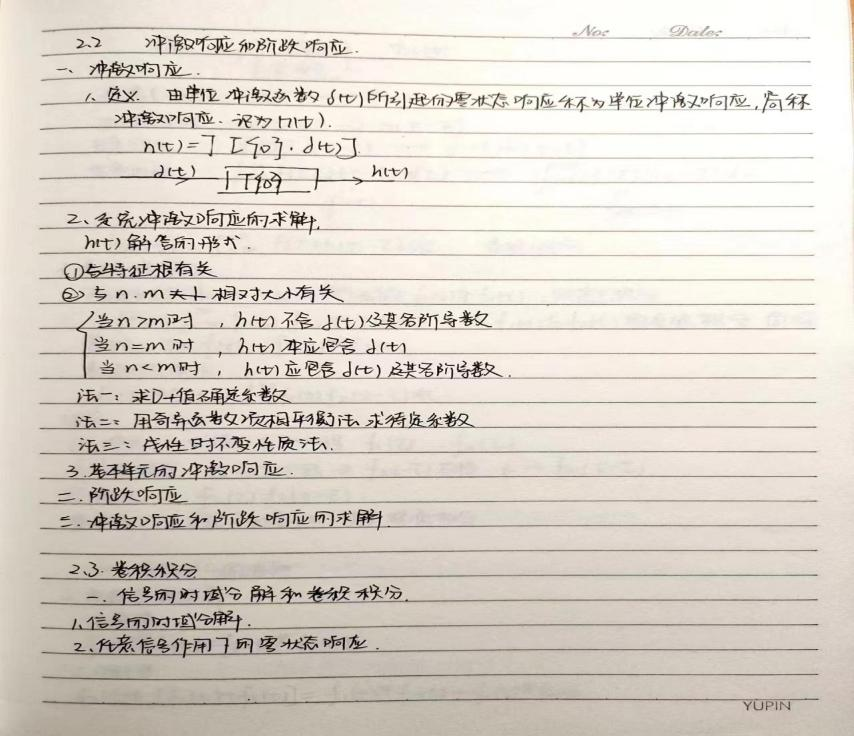 No: Date:
2.2 冲激响应和阶跃响应.
一、冲激响应.
1、定义. 由单位冲激函数δ(t)所引起的零状态响应称为单位冲激响应,简称
冲激响应. 记为h(t).
h(t)=T[{0}, δ(t)]
δ(t) T{0} h(t)
2、系统冲激响应的求解.
h(t)解答的形式.
①与特征根有关
②与n.m 相对大小有关
当n>m时 , h(t)不含δ(t)及其各阶导数
当n=m时 , h(t)中应包含δ(t)
当n<m时 , h(t)应包含δ(t)及其各阶导数.
法一: 求0+值确定系数
法二: 用奇异函数项相平衡法求待定系数
法三: 线性时不变性质法.
3.基本单元的冲激响应.
二.阶跃响应
三.冲激响应和阶跃响应的求解
2.3.卷积积分
一.信号的时域分解和卷积积分.
1.信号的时域分解.
2.任意信号作用下的零状态响应.
YUPIN